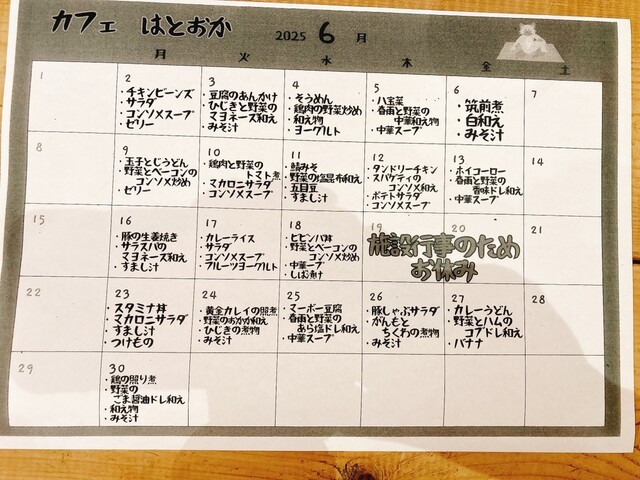 カフェ はとおか
2025 6 月
月 火 水 木 金 土
1
2
・チキンビーンズ
・サラダ
・コンソメスープ
・ゼリー
3
・豆腐のあんかけ
・ひじきと野菜の
マヨネーズ和え
・みそ汁
4
・そうめん
・鶏肉の野菜炒め
・和え物
・ヨーグルト
5
・八宝菜
・春雨と野菜の
中華和え物
・中華スープ
6
・筑前煮
・白和え
・みそ汁
7
8
9
・玉子とじうどん
・野菜とベーコンの
コンソメ炒め
・ゼリー
10
・鶏肉と野菜の
トマト煮
・マカロニサラダ
・コンソメスープ
11
・鯖みそ
・野菜の塩昆布和え
・五目豆
・すまし汁
12
・タンドリーチキン
・スパゲティの
コンソメ和え
・ポテトサラダ
・コンソメスープ
13
・ホイコーロー
・春雨と野菜の
香味ドレ和え
・中華スープ
14
15
16
・豚の生姜焼き
・サラスパの
マヨネーズ和え
・すまし汁
17
・カレーライス
・サラダ
・コンソメスープ
・フルーツヨーグルト
18
・ビビンバ丼
・野菜とベーコンの
コンソメ炒め
・中華スープ
・しば漬け
19
20
施設行事のため
お休み
21
22
23
・スタミナ丼
・マカロニサラダ
・すまし汁
・つけもの
24
・黄金カレイの照煮
・野菜のおかか和え
・ひじきの煮物
・みそ汁
25
・マーボー豆腐
・春雨と野菜の
あら塩ドレ和え
・中華スープ
26
・豚しゃぶサラダ
・がんもと
ちくわの煮物
・みそ汁
27
・カレーうどん
・野菜とハムの
コブドレ和え
・バナナ
28
29
30
・鶏の照り煮
・野菜の
ごま醤油ドレ和え
・和え物
・みそ汁